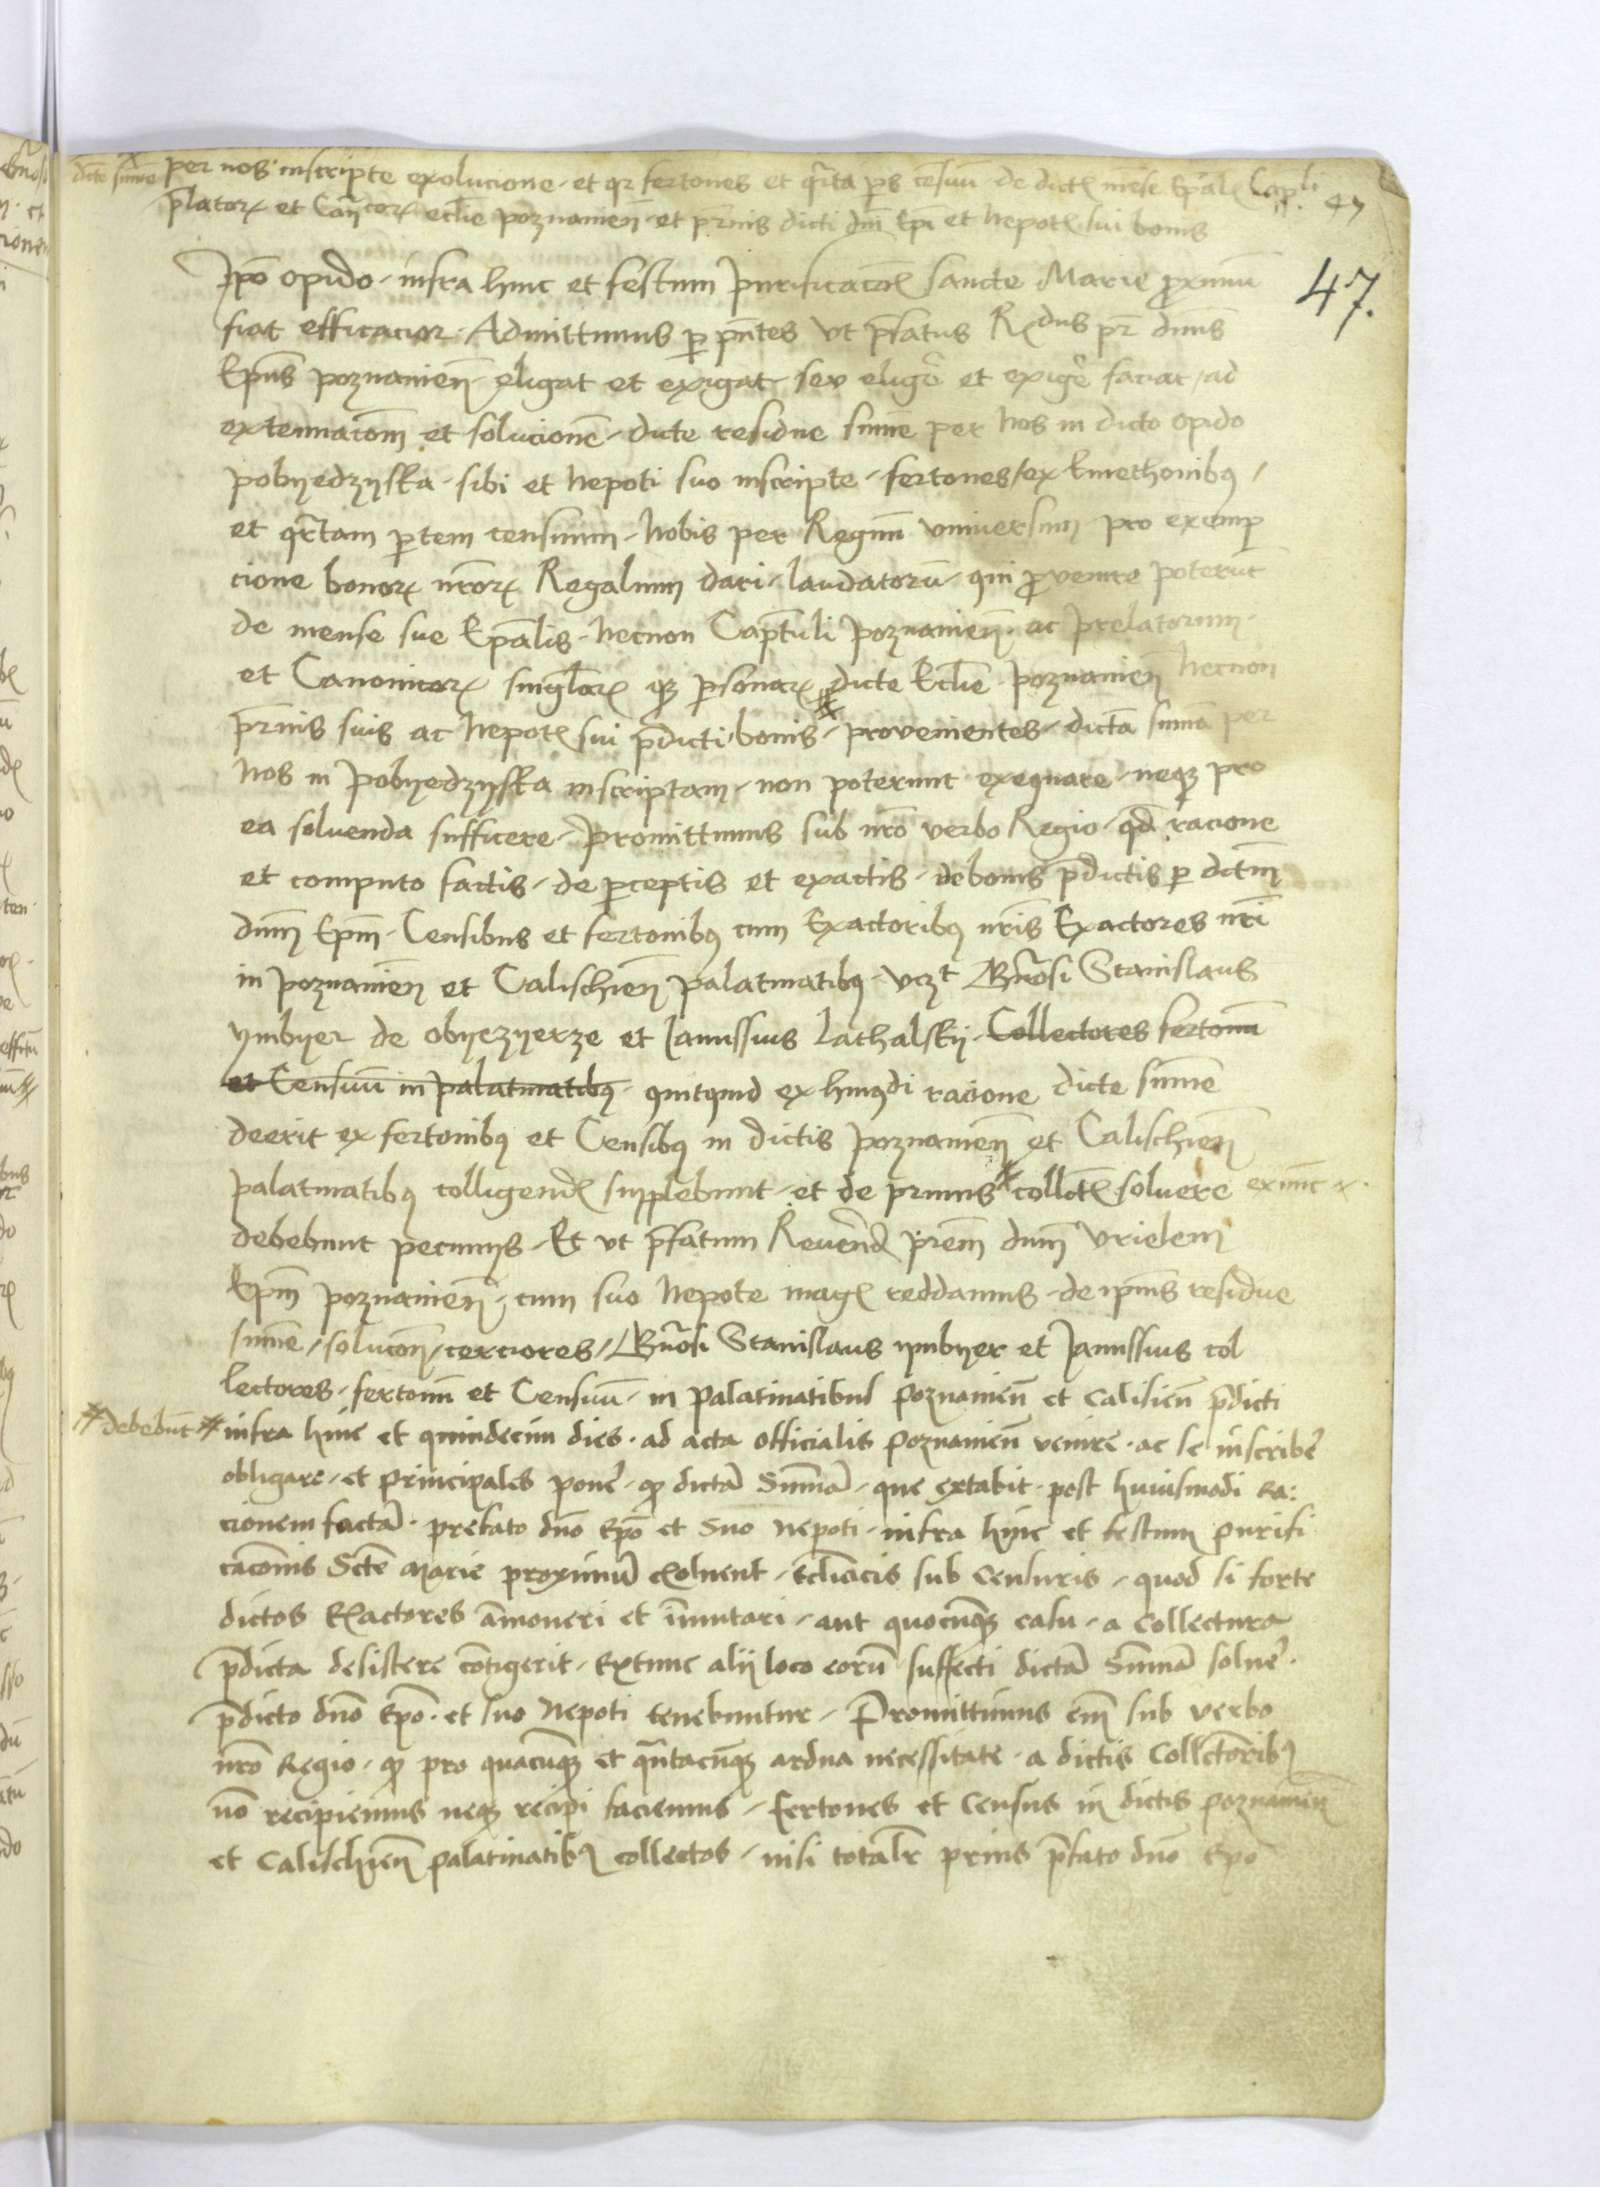 dicte summe per nos inscripte exolucione et qr fertones et qrta ps censuu de dictis mense Epalis Capli 47
platoru et Canicoru ecclie poznanien et prmis dicti dni Epi et Nepotis sui bonis
47.
Ipo opido infra hinc et festum purificacois sancte Marie proximu
fiat efficacior Admittimus per pntes ut pfatus Rdus pr dnus
Epus poznanien eligat et exigat seu eligere et exigere faciat ad
extenuacom et solucione dicte residue summe per nos in dicto opido
pobyedzyska sibi et Nepoti suo inscripte fertones ex kmethonibus
et qrtam ptem censuum Nobis per Regnum universum pro exemp
cione bonoru nroru Regalium dari laudatoru qui provenire poterut
de mense sue Epalis Necnon Captuli poznanien ac prelatorum
et Canonicoru singlaru que psonaru dicte Ecclie poznanien Necnon
prmis suis ac Nepotis sui pdicti bonis provenientes dictam summa per
Nos in pobyedzyska inscriptam non poterunt exequare neque pro
ea solvenda sufficere promittimus sub nro verbo Regio qd racione
et computo factis de perceptis et exactis de bonis pdictis per dictum
dnum Epm Censibus et fertonibus cum Exactoribus nris Exactores nri
in poznanien et Calischien palatinatibus vczt Gnrosi Stanislaus
ymbyer de obyezyerze et Janussius Lathalsky Collectores fertonu
et Censuum in palatinatibus quitquid ex huiusmodi racione dicte summe
deerit ex fertonibus et Censibus in dictis poznanien et Calischien
palatinatibus colligendis supplebunt et de primis collectis solvere extunc
debebunt pecuniis Et ut pfatum Reverendum prem dnum Urielem
Epm poznanien cum suo Nepote magis reddamus de ipius residue
summe solucone cerciores Gnrosi Stanislaus ymbyer et Janussius col
lectores fertonu et Censuum in palatinatibus poznanien et Calisien pdicti
debebunt infra hinc et quindecim dies ad acta officialis poznanien venire ac se inscribere
obligare et principales ponere quod dictam summam que extabit post huiusmodi Ra:
cionem factam prefato dno Epo et suo Nepoti infra hinc et festum purifi
cacionis Scte Marie proximum exolvent Ecclicis sub censuris quod si forte
dictos Exactores amoveri et immutari aut quocumque casu a Collectura
pdicta desistere contigerit Extunc alii loco eorum suffecti dictam Summam solvere
pdicto dno Epo et suo Nepoti tenebuntur Promittimus eni sub verbo
nro Regio quod pro quacumque et quantacumque ardua necessitate a dictis Collectoribus
non recipiemus neque recipi faciemus fertones et Census in dictis poznanien
et Calischien palatinatibus collectos nisi totaliter prius pfato dno Epo